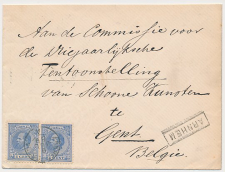 Aan de Commissie voor
de Driejaarlijksche
Tentoonstelling
van Schoone Kunsten
te
Gent
België.
ARNHEM